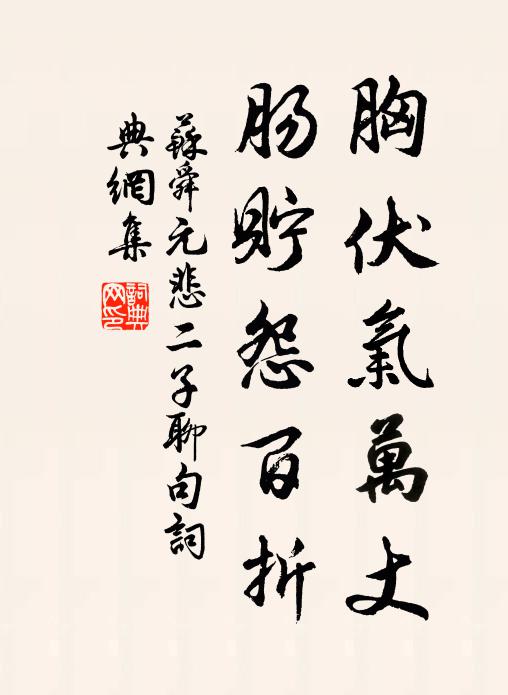 胸伏氣萬丈
肠貯怨百折
蘇舜元悲二子聊句詞
典網集
詞典网印